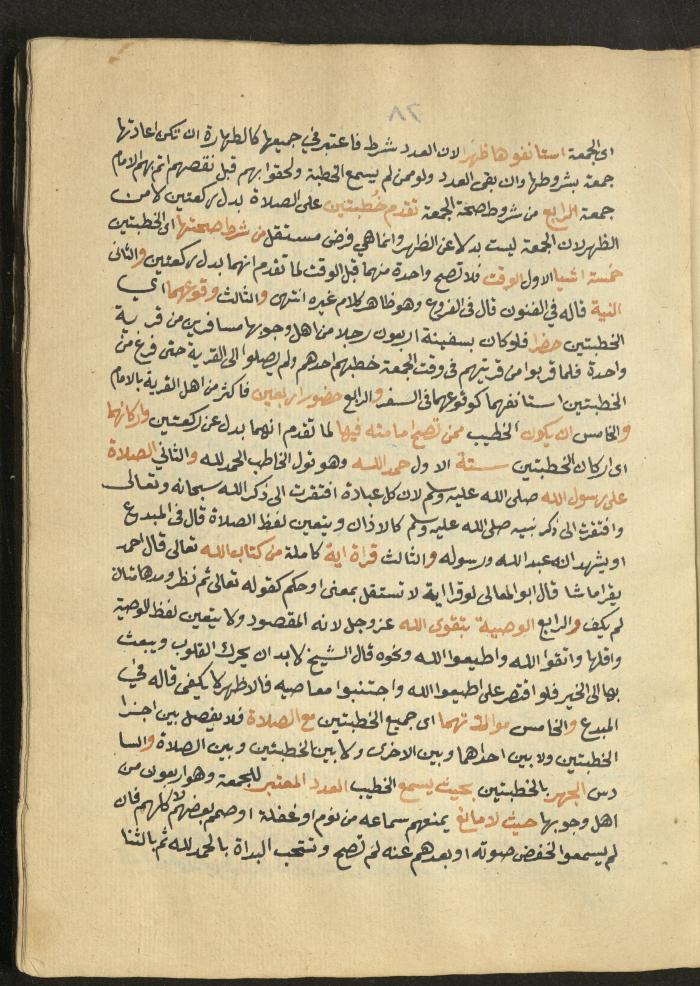 ٦٨
اى الجمعة استانفوها ظهرا لان العدد شرط فاعتبر في جميعها كالطهارة ان لم تكن اعادتها
جمعة بشروطها وان بقى العدد ولو ممن لم يسمع الخطبة ولحقوا بهم قبل نقصهم اتم بهم الامام
جمعة الرابع من شروط صحة الجمعة تقدم خطبتين على الصلاة بدل ركعتين لا من
الظهر لان الجمعة ليست بدلا عن الظهر وانما هي فرض مستقل من شرط صحتها اى الخطبتين
خمسة اشيا الاول الوقت فلا تصح واحدة منهما قبل الوقت لما تقدم انهما بدل ركعتين والثانى
النية قاله في الفنون قال في الفروع وهو ظاهر كلام غيره انتهى والثالث وقوعهما اي
الخطبتين حضرا فلو كان بسفينة اربعون رجلا من اهل وجوبها مسافرين من قرية
واحدة فلما قربوا من قريتهم فى وقت الجمعة خطبهم احدهم ولم يصلوا الى القرية حتى فرغ من
الخطبتين استانفهما كوقوعهما فى السفر والرابع حضور اربعين فاكثر من اهل القرية بالامام
والخامس ان يكون الخطيب ممن تصح امامته فيها لما تقدم انهما بدل عن ركعتين واركانهما
اى اركان الخطبتين ستة الاول حمد الله وهو قول الخاطب الحمد لله والثاني الصلاة
على رسول الله صلى الله عليه وسلم لان كل عبادة افتقرت الى ذكر الله سبحانه وتعالى
وافتقرت الى ذكر نبيه صلى الله عليه وسلم كالاذان ويتعين لفظ الصلاة قال فى المبدع
او يشهد انه عبد الله ورسوله والثالث قراة اية كاملة من كتاب الله تعالى قال احمد
يقرا ما شا قال ابو المعالى لو قرا اية لا تستقل بمعنى او حكم كقوله تعالى ثم نظر ومدهامتان
لم يكف والرابع الوصية بتقوى الله عز وجل لانه المقصود ولا يتعين لفظ الوصية
واقلها واتقوا الله واطيعوا الله ونحوه قال الشيخ لا بد ان يحرك القلوب ويبعث
بها الى الخير فلو اقتصر على اطيعوا الله واجتنبوا معاصيه فالاظهر لا يكفى قاله في
المبدع والخامس موالاتهما اى جميع الخطبتين مع الصلاة فلا يفصل بين اجزا
الخطبتين ولا بين احداهما وبين الاخرى ولا بين الخطبتين وبين الصلاة والسا
دس الجهر بالخطبتين بحيث يسمع الخطيب العدد المعتبر للجمعة وهو اربعون من
اهل وجوبها حيث لا مانع يمنعهم سماعه من نوم او غفلة او صمم بعضهم لا كلهم فان
لم يسمعوا لخفض صوته او بعدهم عنه لم تصح وتستحب البداة بالحمد لله ثم بالثنا